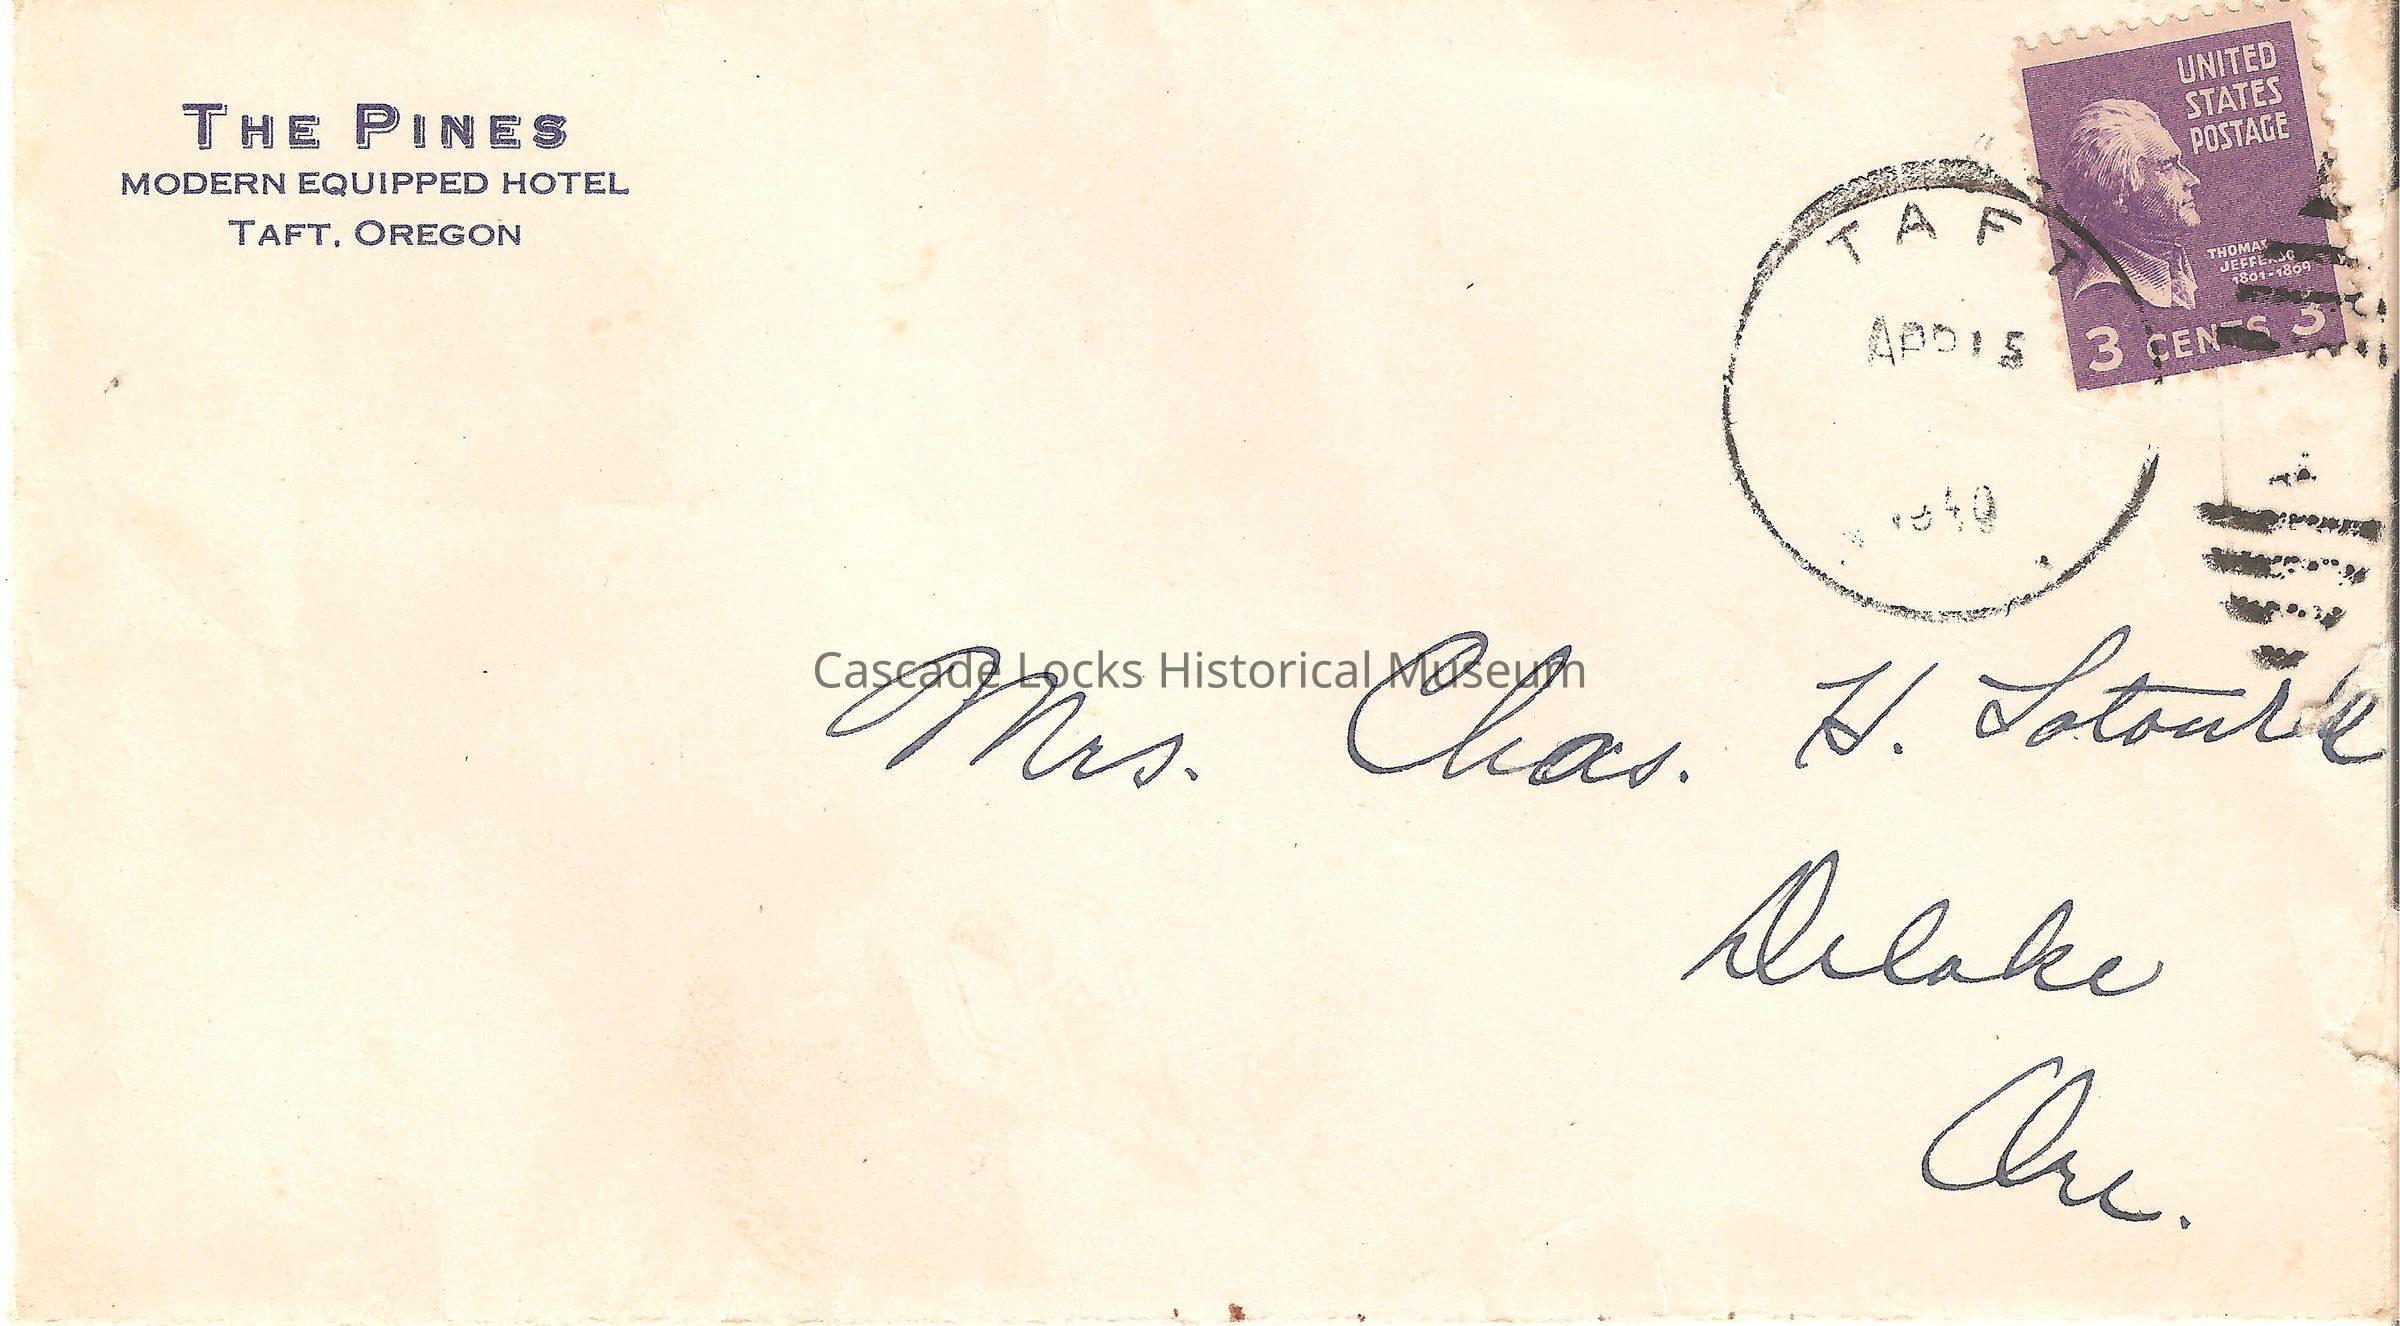 THE PINES
MODERN EQUIPPED HOTEL
TAFT, OREGON
UNITED
STATES
POSTAGE
THOMAS
JEFFERSO
1801-1809
3 CENTS 3
TAFT
APR 15
1940
Cascade Locks Historical Museum
Mrs. Chas. H.
Delake
Ore.